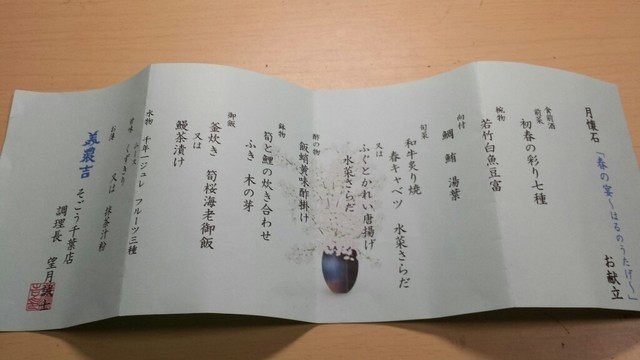 月懐石「春の宴～はるのうたげ～」お献立
食前酒
前菜
初春の彩り七種
椀物
若竹白魚豆富
向付
鯛 鮪 湯葉
旬菜
和牛炙り焼
春キャベツ 水菜さらだ
又は
ふぐとかれい唐揚げ
水菜さらだ
酢の物
飯蛸黄味酢掛け
筍と鯉の炊き合わせ
ふき 木の芽
御飯
釜炊き 筍桜海老御飯
又は
鰻茶漬け
水物
千年一ジュレ フルーツ三種
又は 抹茶汁粉
美濃吉 そごう千葉店
調理長 望月